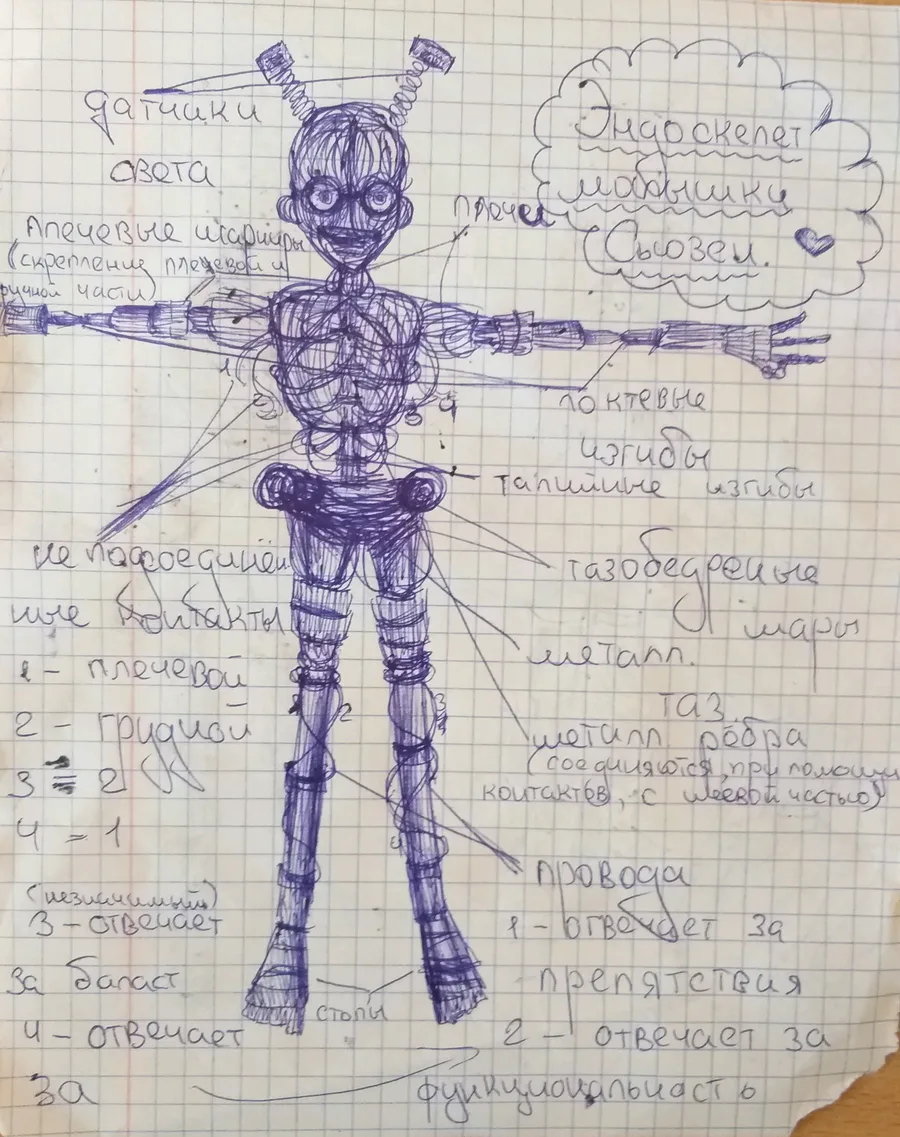 Эндоскелет
малышки
Сьюзен.
датчики
света
плечи
плечевые шарниры
(скрепление плечевой и
ручной части)
1
2
3 4
локтевые
изгибы
талийные изгибы
не подсоединён
ные контакты
1 - плечевой
2 - грудной
3 = 2
4 = 1
(незначимый)
3 - отвечает
за баласт
4 - отвечает
за
тазобедреные
шары
металл.
таз.
металл рёбра
(соединяются, при помощи
контактов, с шеевой частью)
2
3
4
4
провода
1 - отвечает за
препятствия
2 - отвечает за
функциональность
стопы